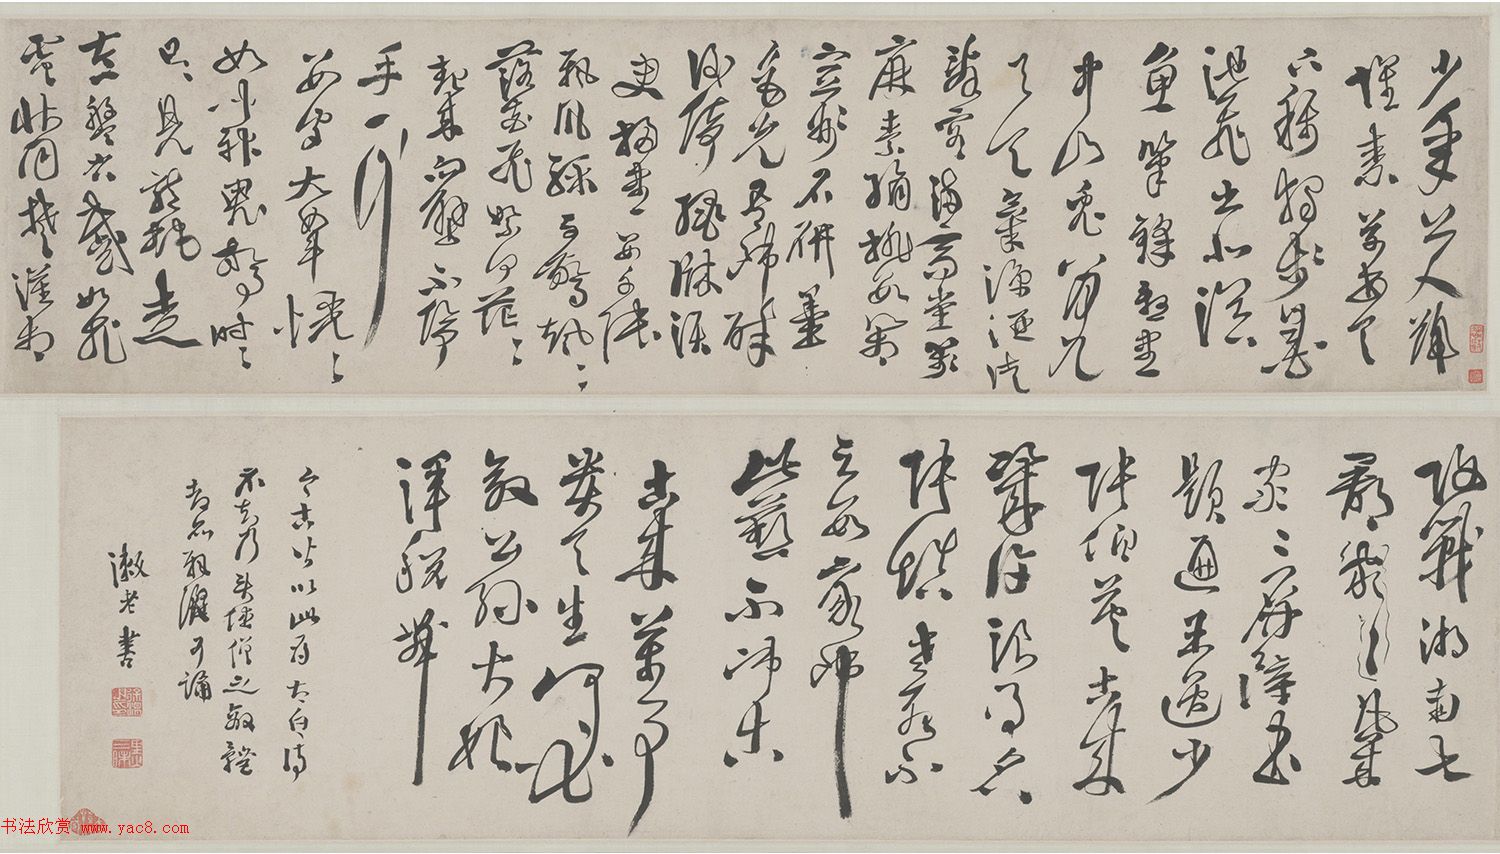 少年上人號
懷素草書天
下稱獨步墨
池飛出北溟
魚筆鋒殺盡
中山兔八月九
月天氣涼酒徒
詞客滿高堂箋
麻素絹排數箱
宣州石硯墨
色光吾師醉
後倚繩床須
臾掃盡數千張
飄風驟雨驚颯颯
落花飛雪何茫茫
起來向壁不停
手一行
數字大如斗恍恍
如聞神鬼驚時時
只見龍蛇走
左盤右蹙如飛
電狀同楚漢相
攻戰湖南七
郡凡幾家
家家屏障書
題遍王逸少
張伯英古來
幾許浪得名
張顛老死不
足數我師
此藝不師古
古來萬事
貴天生何必
要公孫大娘
渾脫舞
今古皆以此為太白詩
不知乃僧之
可誦
漱老書
书法欣赏 www.yac8.com